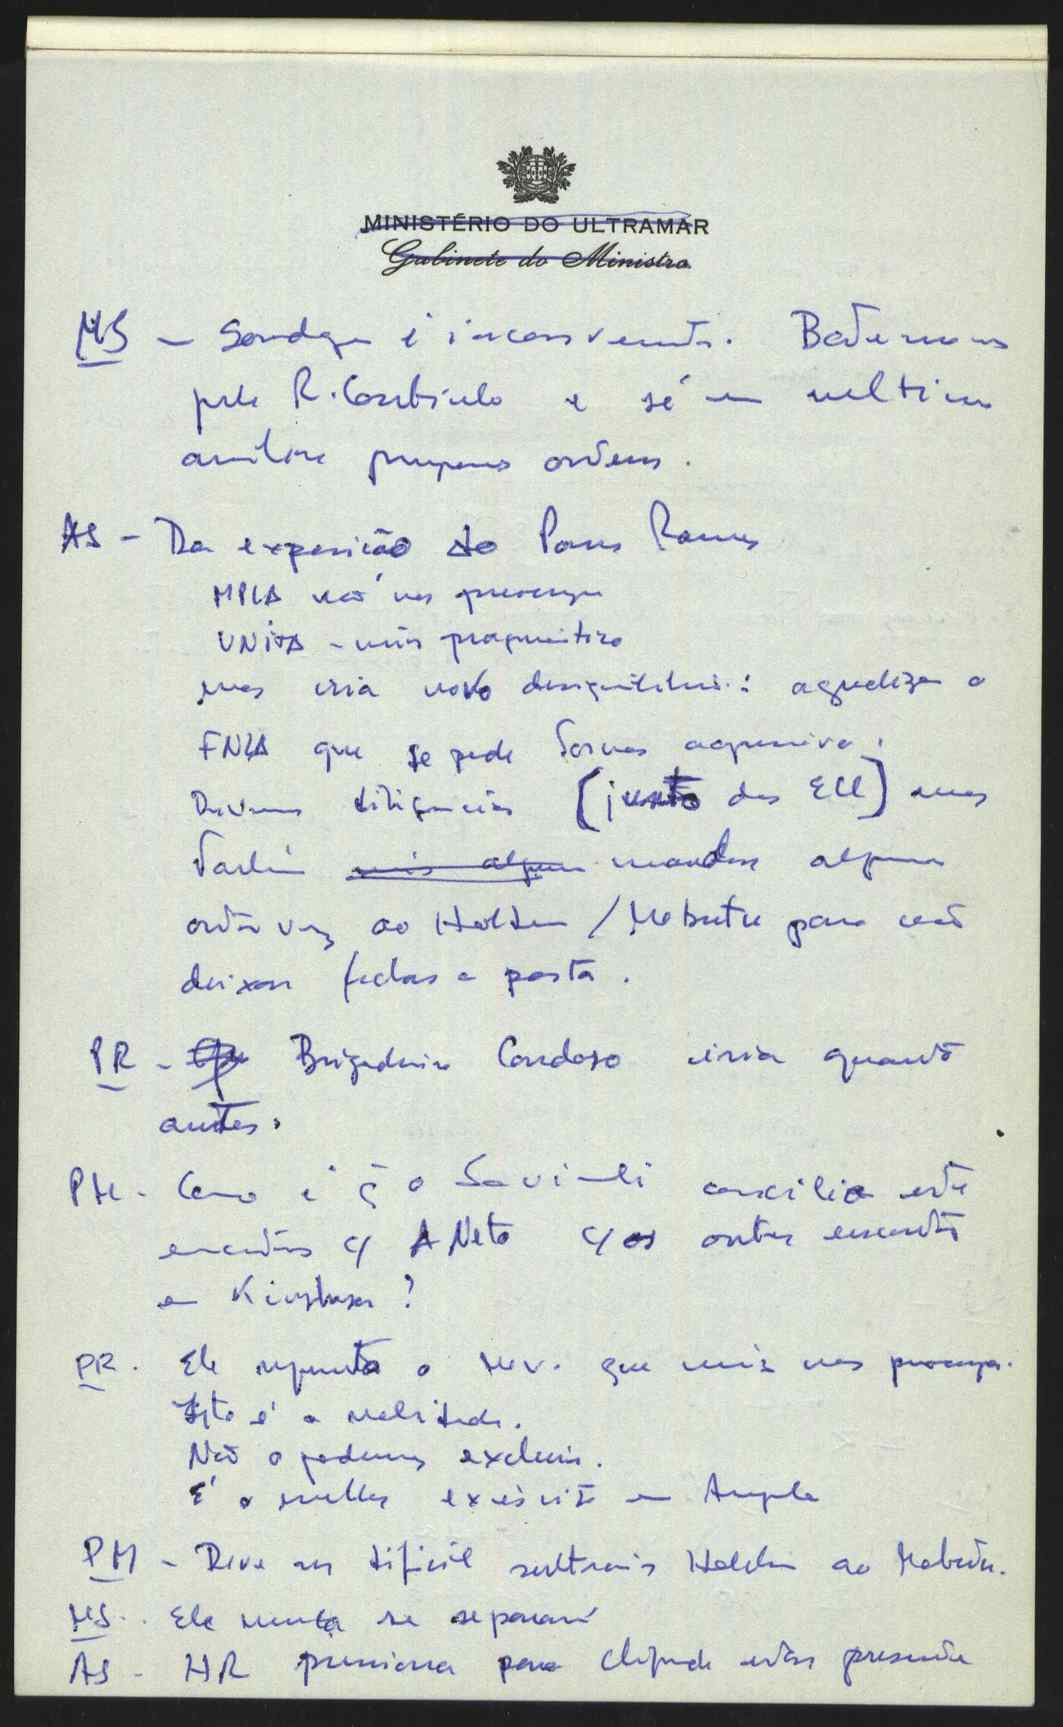 MINISTÉRIO DO ULTRAMAR
Gabinete do Ministro
MS - é inconveniente. Batermo-nos
pela R. Conto e só em última
ordens.
AS - Da exposição do Ramos
MPLA não nos preocupa
UNITA - mais pragmático
mas cria novo desequilíbrio: agudizar a
FNLA que se pode tornar agressiva.
Devemos diligências (junto dos EU) mas
também mais alguém mandar alguém
outra vez ao Holden / Mobutu para não
deixar fechar a porta.
PR - Brigadeiro Cardoso iria quanto
antes.
PM - Como é q o Savimbi concilia este
encontro c/ A Neto c/ os outros encontros
em Kinshasa?
PR - Ele representa o mov. que mais nos preocupa.
Isto é a realidade.
Não o podemos excluir.
É o melhor exército em Angola
PM - Deve ser difícil subtrair Holden ao Mobutu.
MS - Ele nunca se separará
AS - HR pressiona para Chipenda estar presente